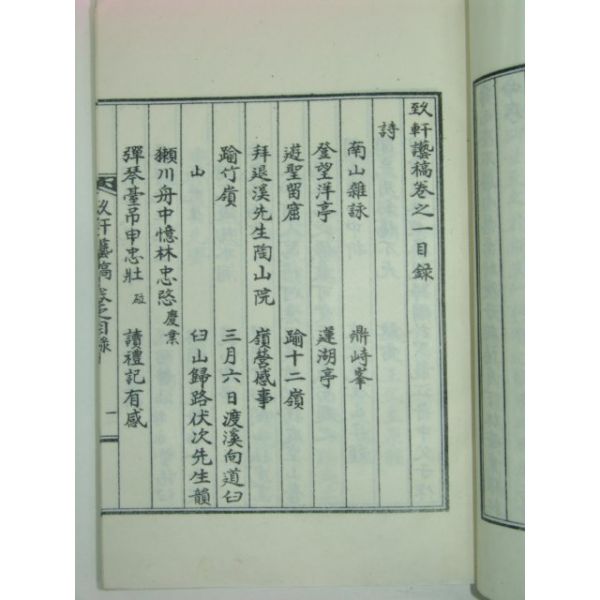 致軒謾稿卷之一目錄
詩
南山雜詠 鼎峙峯
登望洋亭 蓮湖亭
遊聖留窟 踰十二嶺
拜退溪先生陶山院 嶺營感事
踰竹嶺 三月六日渡溪向道臼
山 臼山歸路伏次先生韻
獺川舟中憶林忠愍慶業
彈琴臺吊申忠壯砬 讀禮記有感
軒謾稿 卷之一目錄 一